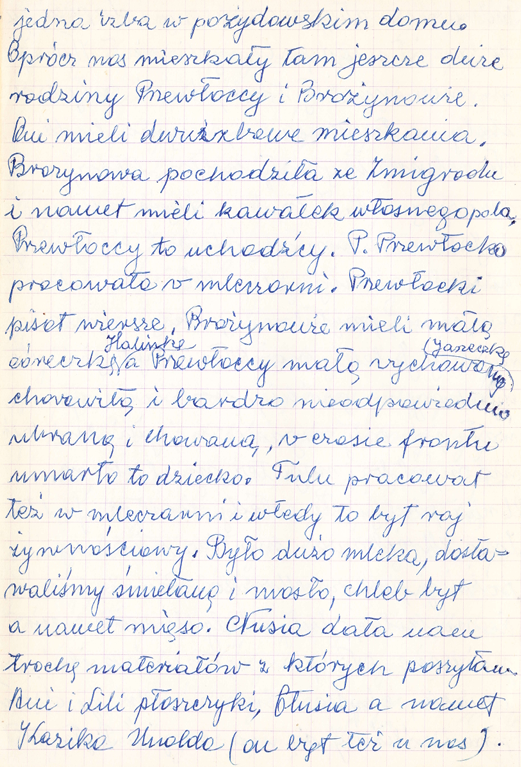 jedna izba w pożydowskim domu.
Oprócz nas mieszkały tam jeszcze dwie
rodziny Przewłoccy i Brożynowie.
Oni mieli dwuizbowe mieszkania.
Brożynowa pochodziła ze Żmigrodu
i nawet mieli kawałek własnego pola.
Przewłoccy to uchodźcy. P. Przewłocka
pracowała w mleczarni. Przewłocki
pisał wiersze. Brożynowie mieli małą
córeczkę Halinkę, a Przewłoccy małą wychowanę (Janeczkę)
chorowitą i bardzo nieodpowiednio
ubraną i chowaną, w czasie frontu
umarło to dziecko. Tulu pracował
też w mleczarni i wtedy to był raj
żywnościowy. Było dużo mleka, dosta-
waliśmy śmietanę i masło, chleb był
a nawet mięso. Nusia dała nam
trochę materiałów z których poszyłam
Ani i Lili płaszczyki, a nawet
Kazika (on był też u nas).